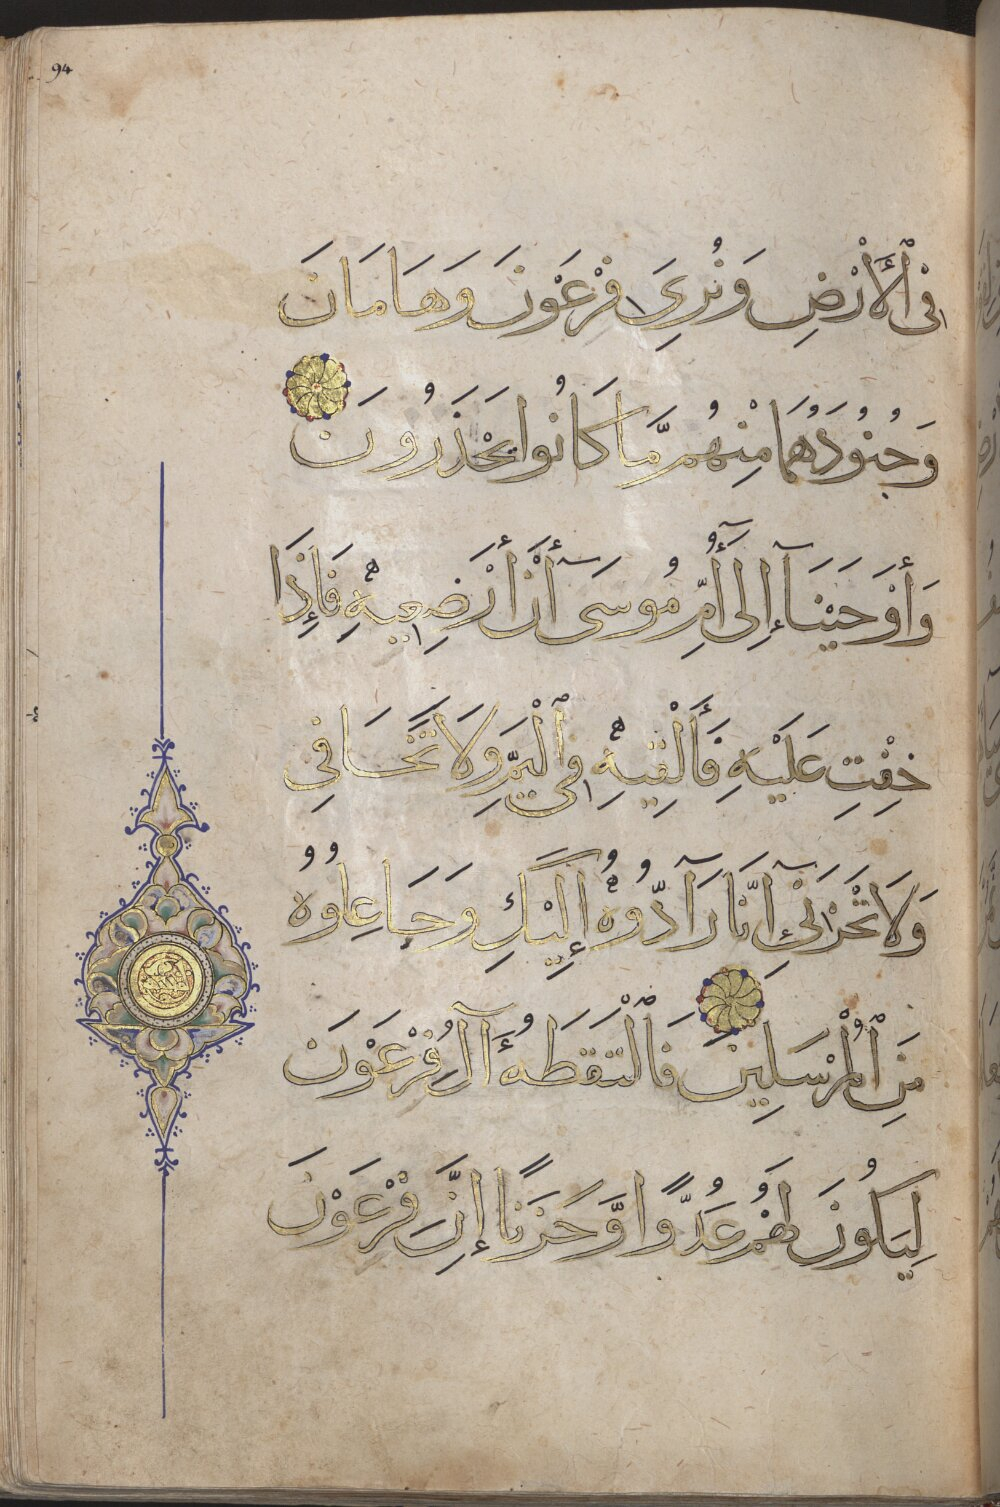 94
فِى ٱلْأَرْضِ وَنُرِىَ فِرْعَوْنَ وَهَامَانَ
وَجُنُودَهُمَا مِنْهُم مَّا كَانُوا يَحْذَرُونَ
وَأَوْحَيْنَآ إِلَىٰٓ أُمِّ مُوسَىٰٓ أَنْ أَرْضِعِيهِ فَإِذَا
خِفْتِ عَلَيْهِ فَأَلْقِيهِ فِى ٱلْيَمِّ وَلَا تَخَافِى
وَلَا تَحْزَنِىٓ إِنَّا رَآدُّوهُ إِلَيْكِ وَجَاعِلُوهُ
مِنَ ٱلْمُرْسَلِينَ فَٱلْتَقَطَهُۥٓ آلُ فِرْعَوْنَ
لِيَكُونَ لَهُمْ عَدُوًّا وَّحَزَنًا إِنَّ فِرْعَوْنَ